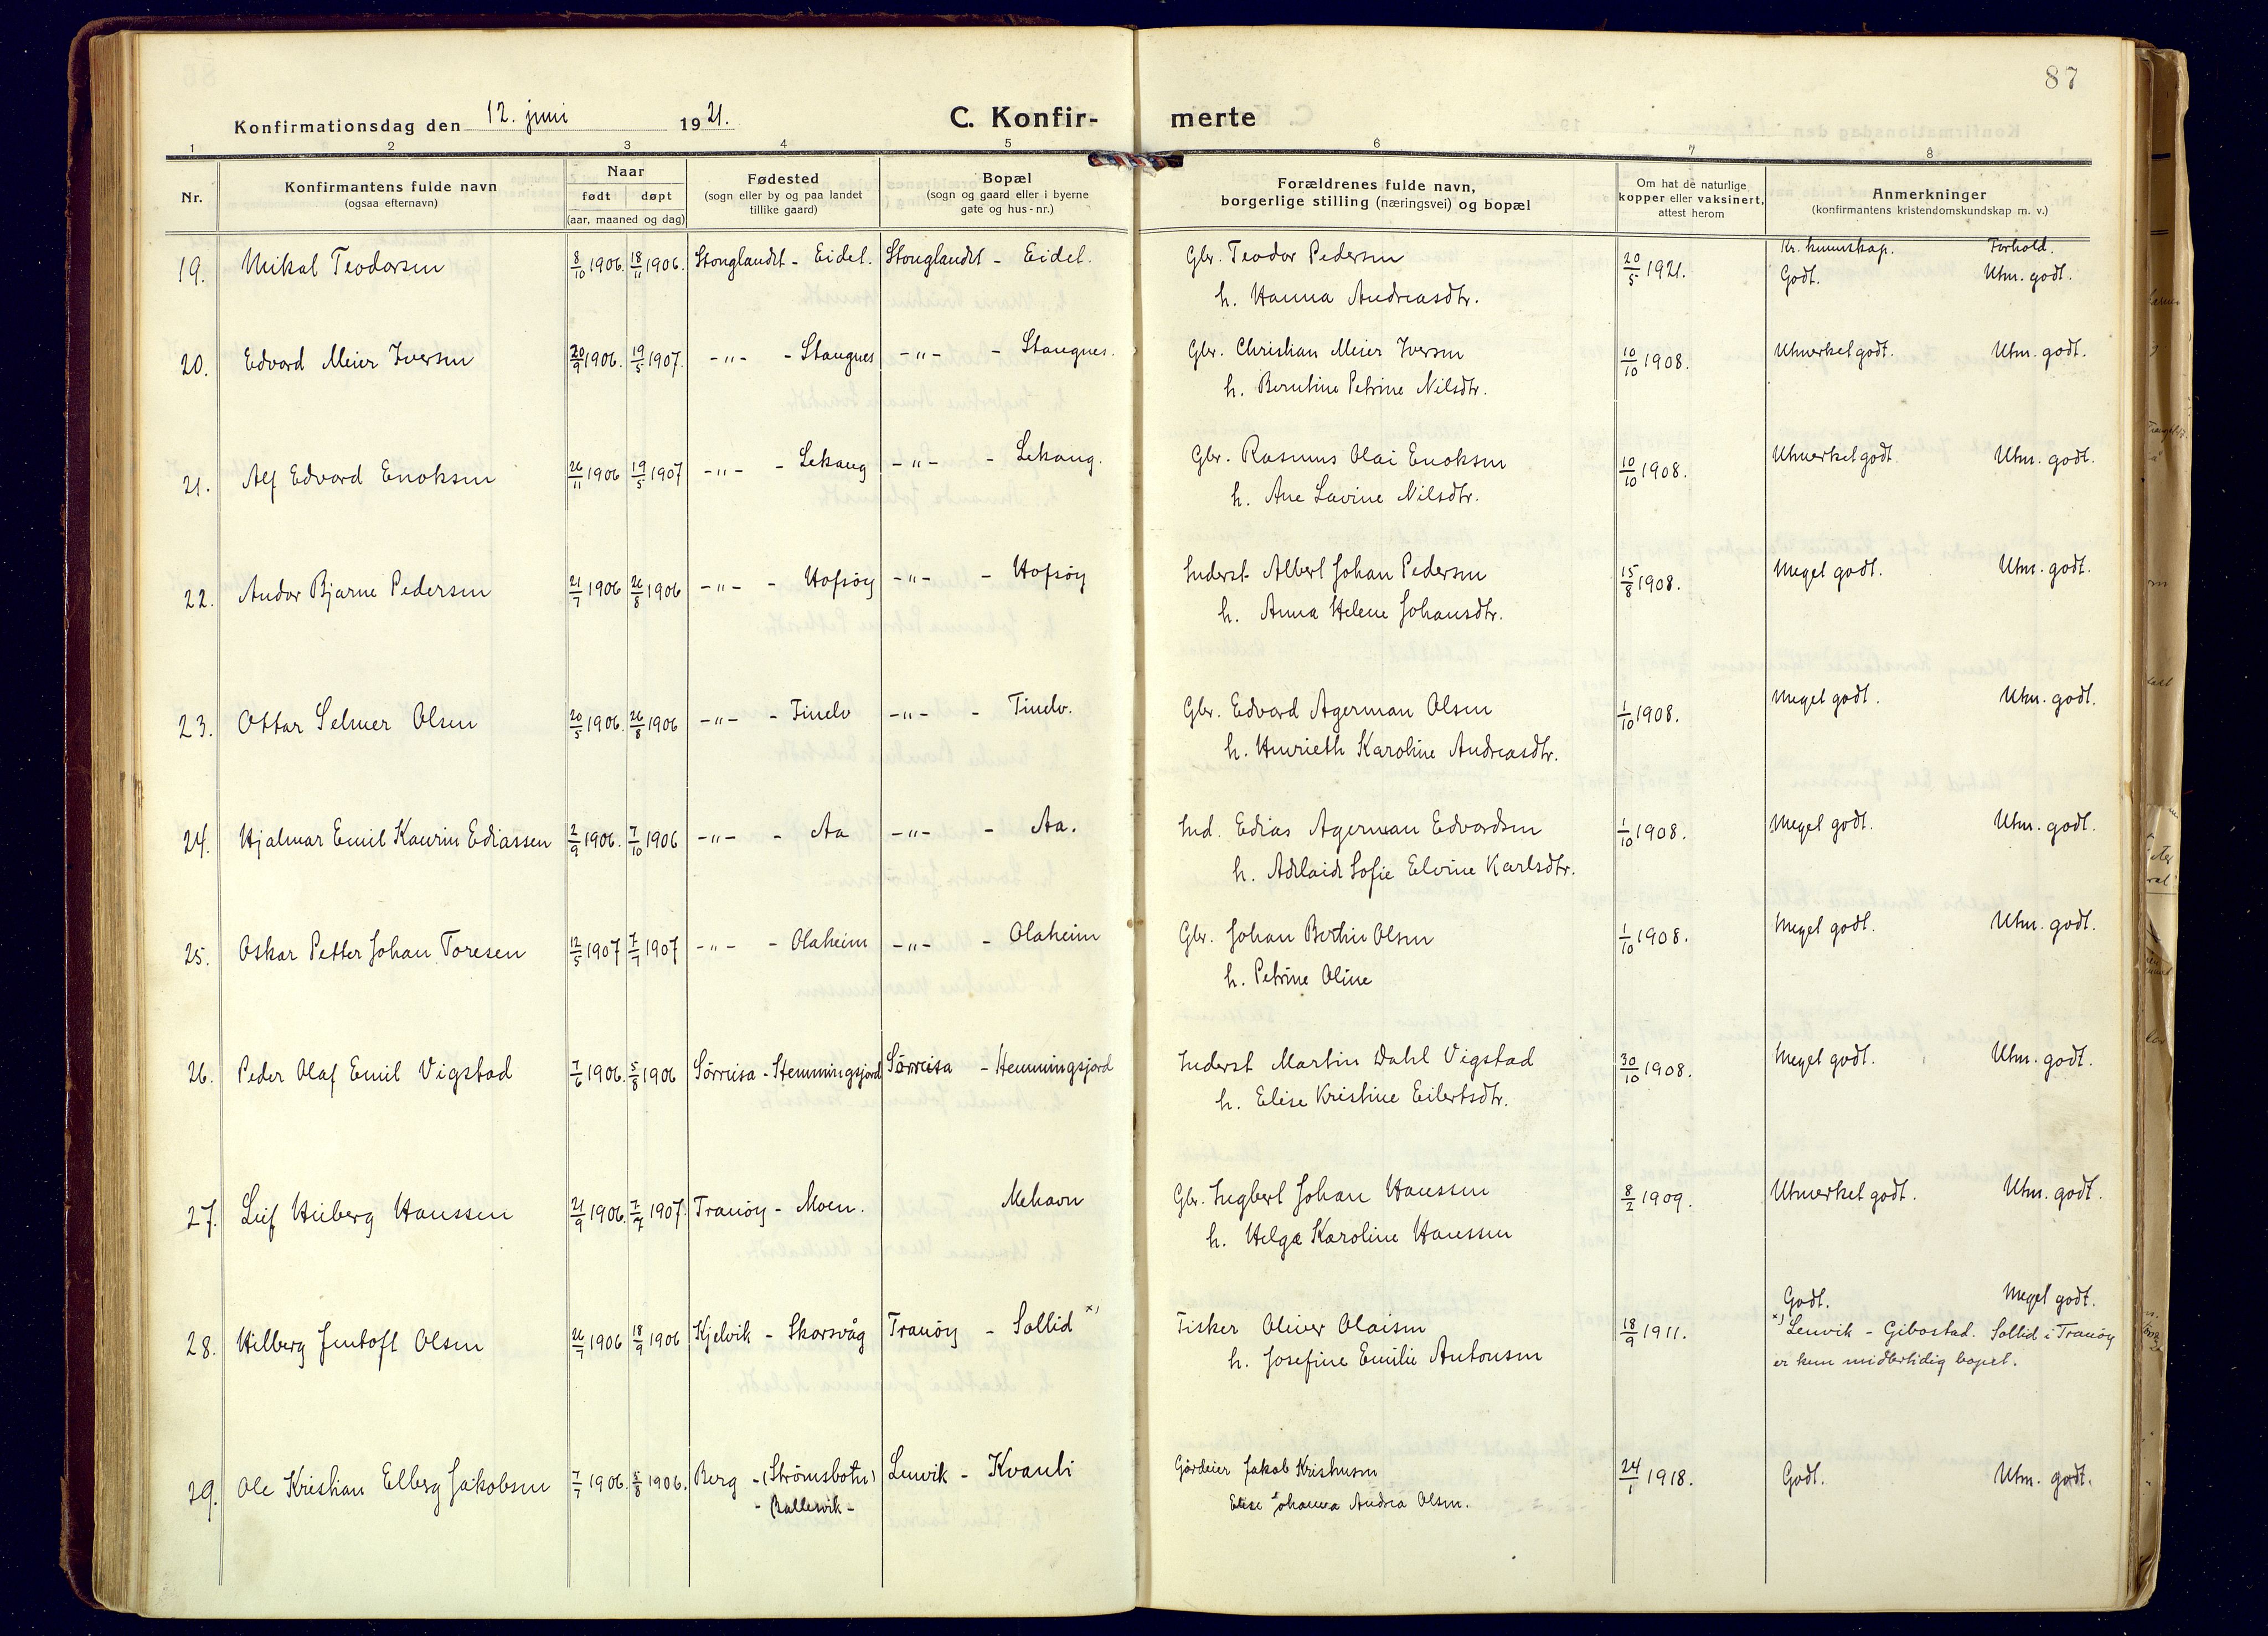 87
Konfirmationsdag den 12. juni 1921.
C. Konfir-merte
1 2 3 4 5 6 7 8
Nr.
Konfirmantens fulde navn
(ogsaa efternavn)
Naar
født døpt
(aar, maaned og dag)
Fødested
(sogn eller by og paa landet
tillike gaard)
Bopæl
(sogn og gaard eller i byerne
gate og hus-nr.)
Forældrenes fulde navn,
borgerlige stilling (næringsvei) og bopæl
Om hat de naturlige
kopper eller vaksinert,
attest herom
Anmerkninger
(konfirmantens kristendomskundskap m. v.)
Kr. kunnskap. Forhold.
19. Mikal Teodorsen 8/10 1906. 18/11 1906. Stonglandet - Eidet. Stonglandet - Eidet. Gbr. Teodor Pedersen 20/5 1921. Godt. Utm. godt.
h. Hanna Andreasdtr.
20. Edvard Meier Iversen 20/9 1906. 19/5 1907. -"- - Stangnes -"- - Stangnes. Gbr. Christian Meier Iversen 10/10 1908. Utmerket godt. Utm. godt.
h. Berntine Petrine Nilsdtr.
21. Alf Edvard Enoksen 26/11 1906 19/5 1907 -"- - Lekang -"- - Lekang. Gbr. Rasmus Olai Enoksen 10/10 1908. Utmerket godt. Utm. godt.
h. Ane Lavine Nilsdtr.
22. Andor Bjarne Pedersen 21/7 1906 26/8 1906 -"- - Hofsöy -"- - Hofsöy Inderst Albert Johan Pedersen 15/8 1908. Meget godt. Utm. godt.
h. Anna Helene Johansdtr.
23. Ottar Selmer Olsen 20/5 1906. 26/8 1906 -"- - Finelv -"- - Finelv. Gbr. Edvard Agerman Olsen 1/10 1908. Meget godt. Utm. godt.
h. Henrieth Karoline Andreasdtr.
24. Hjalmar Emil Kaurin Ediassen 2/9 1906. 7/10 1906 -"- - Aa -"- - Aa. Ind. Edias Agerman Edvardsen 1/10 1908. Meget godt. Utm. godt.
h. Adelaide Sofie Elvine Karlsdtr.
25. Oskar Petter Johan Toresen 12/5 1907 7/7 1907 -"- - Olaheim -"- - Olaheim Gbr. Johan Bertin Olsen 1/10 1908. Meget godt. Utm. godt.
h. Petrine Oline
26. Peder Olaf Emil Vigstad 7/6 1906. 5/8 1906 Sörreisa - Hemmingsjord Sörreisa - Hemmingsjord Inderst Martin Dahl Vigstad 30/10 1908. Meget godt. Utm. godt.
h. Elise Kristine Eilertsdtr.
27. Leif Heiberg Hanssen 21/9 1906. 7/4 1907. Tranöy - Moen. Mehavn Gbr. Ingbert Johan Hanssen 8/2 1909. Utmerket godt. Utm. godt.
h. Helga Karoline Hanssen
28. Hilberg Jentoft Olsen 26/7 1906 18/9 1906 Kjelvik - Skarsvåg Tranöy - Sollid x) Fisker Oliver Olaisen 18/9 1911. Godt. Meget godt.
h. Josefine Emilie Antonsen
x) Lenvik - Gibostad. Sollid i Tranöy
er kun midlertidig bopel.
29. Ole Kristian Elberg Jakobsen 7/7 1906. 5/8 1906. Berg - (Strömsbotn) Lenvik - Kvanli Gårdeier Jakob Kristiansen 24/1 1918. Godt. Utm. godt.
- Ballesvik -
Elise Johanna Andrea Olsen.